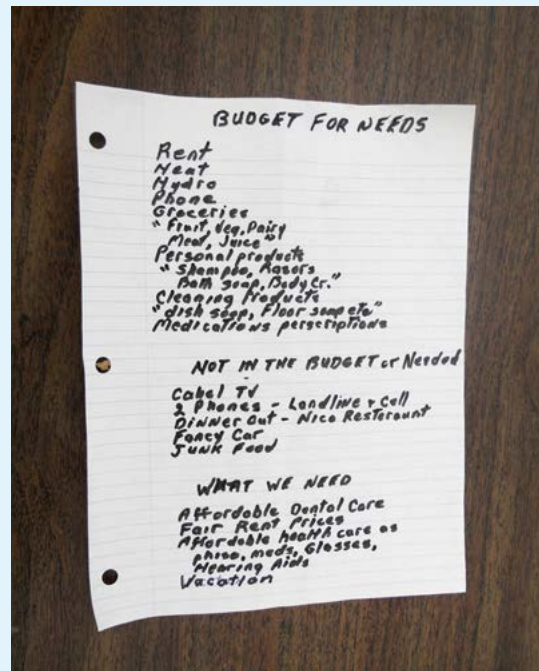 BUDGET FOR NEEDS
Rent
Heat
Hydro
Phone
Groceries
"Fruit, Veg, Dairy
Meat, Juice"
Personal products
"Shampoo, Rasors
Bath soap, Body Cr."
Cleaning Products
"dish soap, Floor soap etc"
Medications perscriptions
NOT IN THE BUDGET or Needed
Cabel TV
2 Phones - Landline + Cell
Dinner Out - Nice Resteraunt
Fancy Car
Junk Food
WHAT WE NEED
Affordable Dental Care
Fair Rent Prices
Affordable health care as
phiso, meds, Glasses,
Hearing Aids
Vacation